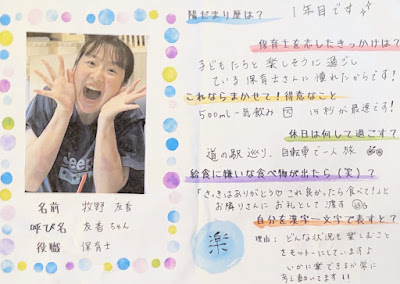 陽だまり歴は?
1年目です
保育士を志したきっかけは?
子どもたちと楽しそうに過ごし
ている保育士さんに憧れたからです!
これならまかせて!得意なこと
500ml一気飲み
15秒が最速です!
休日は何して過ごす?
道の駅巡り、自転車で一人旅
給食に嫌いな食べ物が出たら(笑)?
「さっきはありがとう♡これ良かったら食べて!」と
お隣りさんにお礼として渡す
自分を漢字一文字で表すと?
楽
理由: どんな状況も楽しむこと
をモットーにしていますよ
いかに楽できるか常に
考え動いてます!!
名前 牧野 友香
呼び名 友香ちゃん
役職 保育士
Jeep